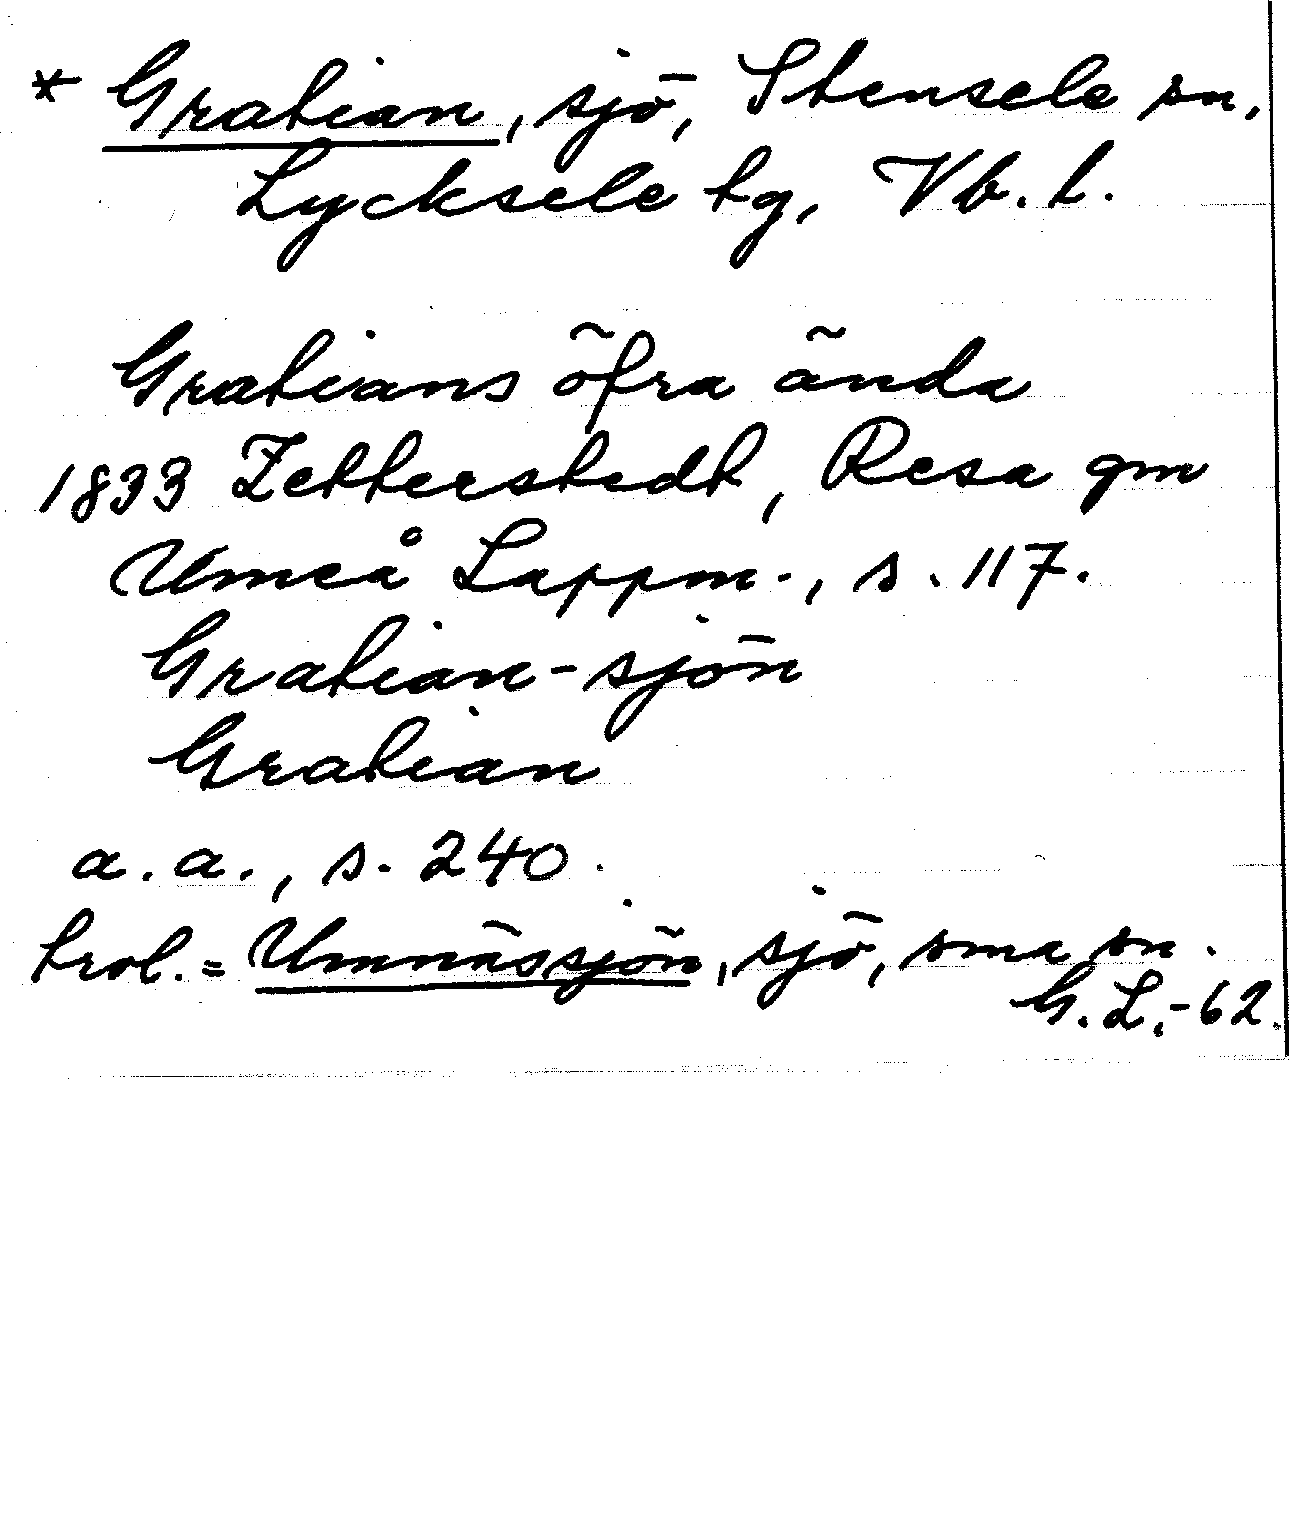 * Gratian, sjö, Stensele sn,
Lycksele tg, Vb. l.
Gratians öfra ända
1833 Zetterstedt, Resa gm
Umeå Lappm., s. 117.
Gratian-sjön
Gratian
a. a., s. 240.
trol. = Umnässjön, sjö, sma sn.
G. L. -62.